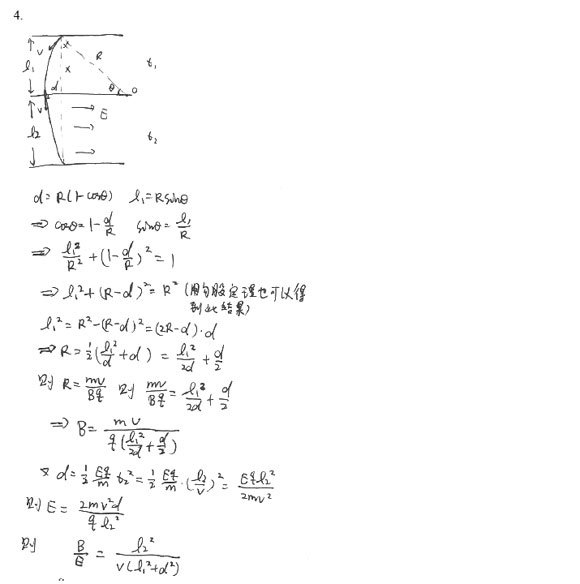 4.
V x R t₁
l₁ x
d θ O
V E
l₂ t₂
d = R(1-cosθ) l₁=Rsinθ
⇒ cosθ=1-d/R sinθ=l₁/R
⇒ l₁²/R² + (1-d/R)² = 1
⇒ l₁²+(R-d)²= R² (用勾股定理也可以得
到此结果)
l₁² = R²-(R-d)²=(2R-d)·d
⇒ R = 1/2(l₁²/d+d) = l₁²/2d + d/2
则 R = mv/Bq 则 mv/Bq = l₁²/2d + d/2
⇒ B= mv/q(l₁²/2d+d/2)
又 d = 1/2 Eq/m t₂² = 1/2 Eq/m·(l₂/v)² = Eql₂²/2mv²
则 E = 2mv²d/ql₂²
则 B/E = l₂²/v(l₁²+d²)